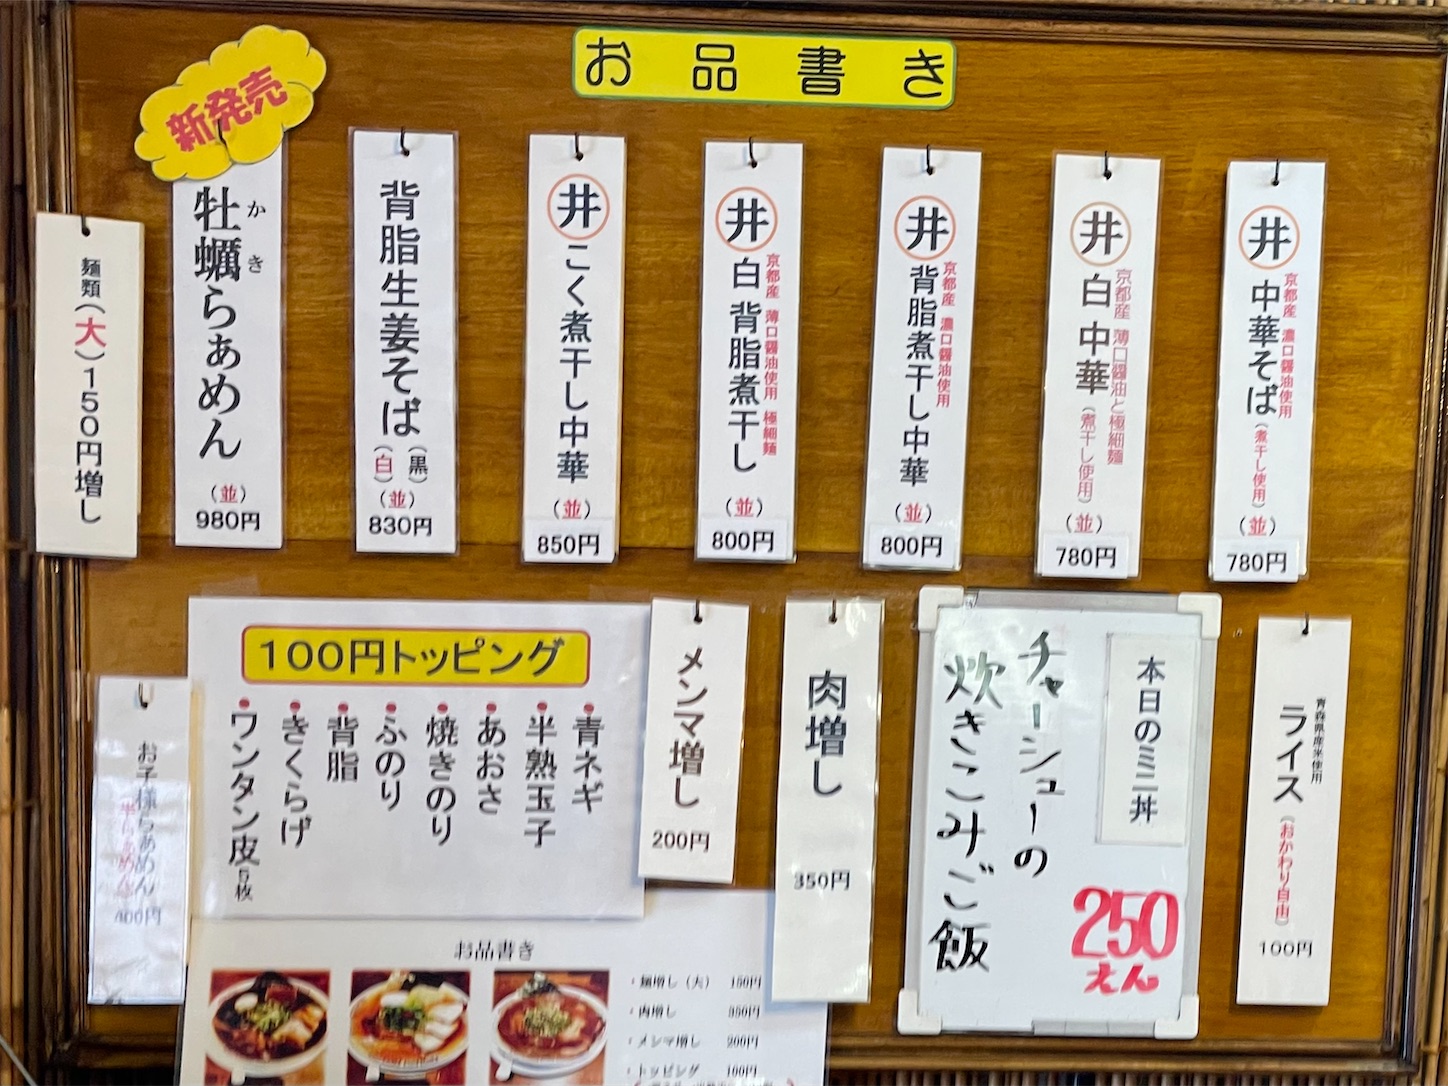 お品書き
井
中華そば
京都産 濃口醤油使用
（煮干し使用）
（並）
780円
井
白 中華
京都産 薄口醤油と極細麺
（煮干し使用）
（並）
780円
井
背脂煮干し中華
京都産 濃口醤油使用
（並）
800円
井
白 背脂煮干し
京都産 薄口醤油使用 極細麺
（並）
800円
井
こく煮干し中華
（並）
850円
背脂生姜そば
（黒）
（白）
（並）
830円
新発売
牡蠣らぁめん
かき
（並）
980円
麺類（大）150円増し
青森県産米使用
ライス
（おかわり自由）
100円
本日のミニ丼
チャーシューの
炊きこみご飯
250
えん
肉増し
350円
メンマ増し
200円
100円トッピング
・青ネギ
・半熟玉子
・あおさ
・焼きのり
・ふのり
・背脂
・きくらげ
・ワンタン皮5枚
お子様らぁめん
半らぁめん
400円
お品書き
・麺増し（大） 150円
・肉増し 350円
・メンマ増し 200円
・トッピング 100円